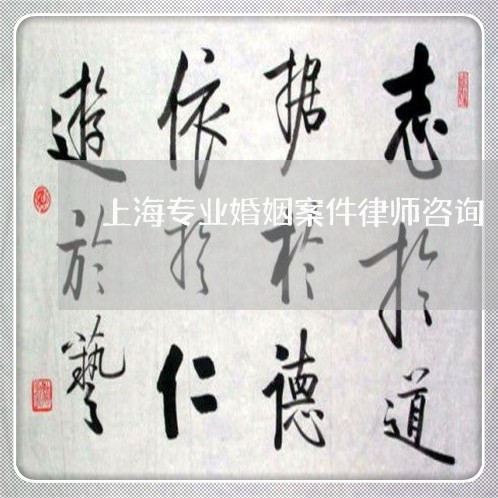 志於道
据於德
依於仁
遊於藝
上海专业婚姻案件律师咨询